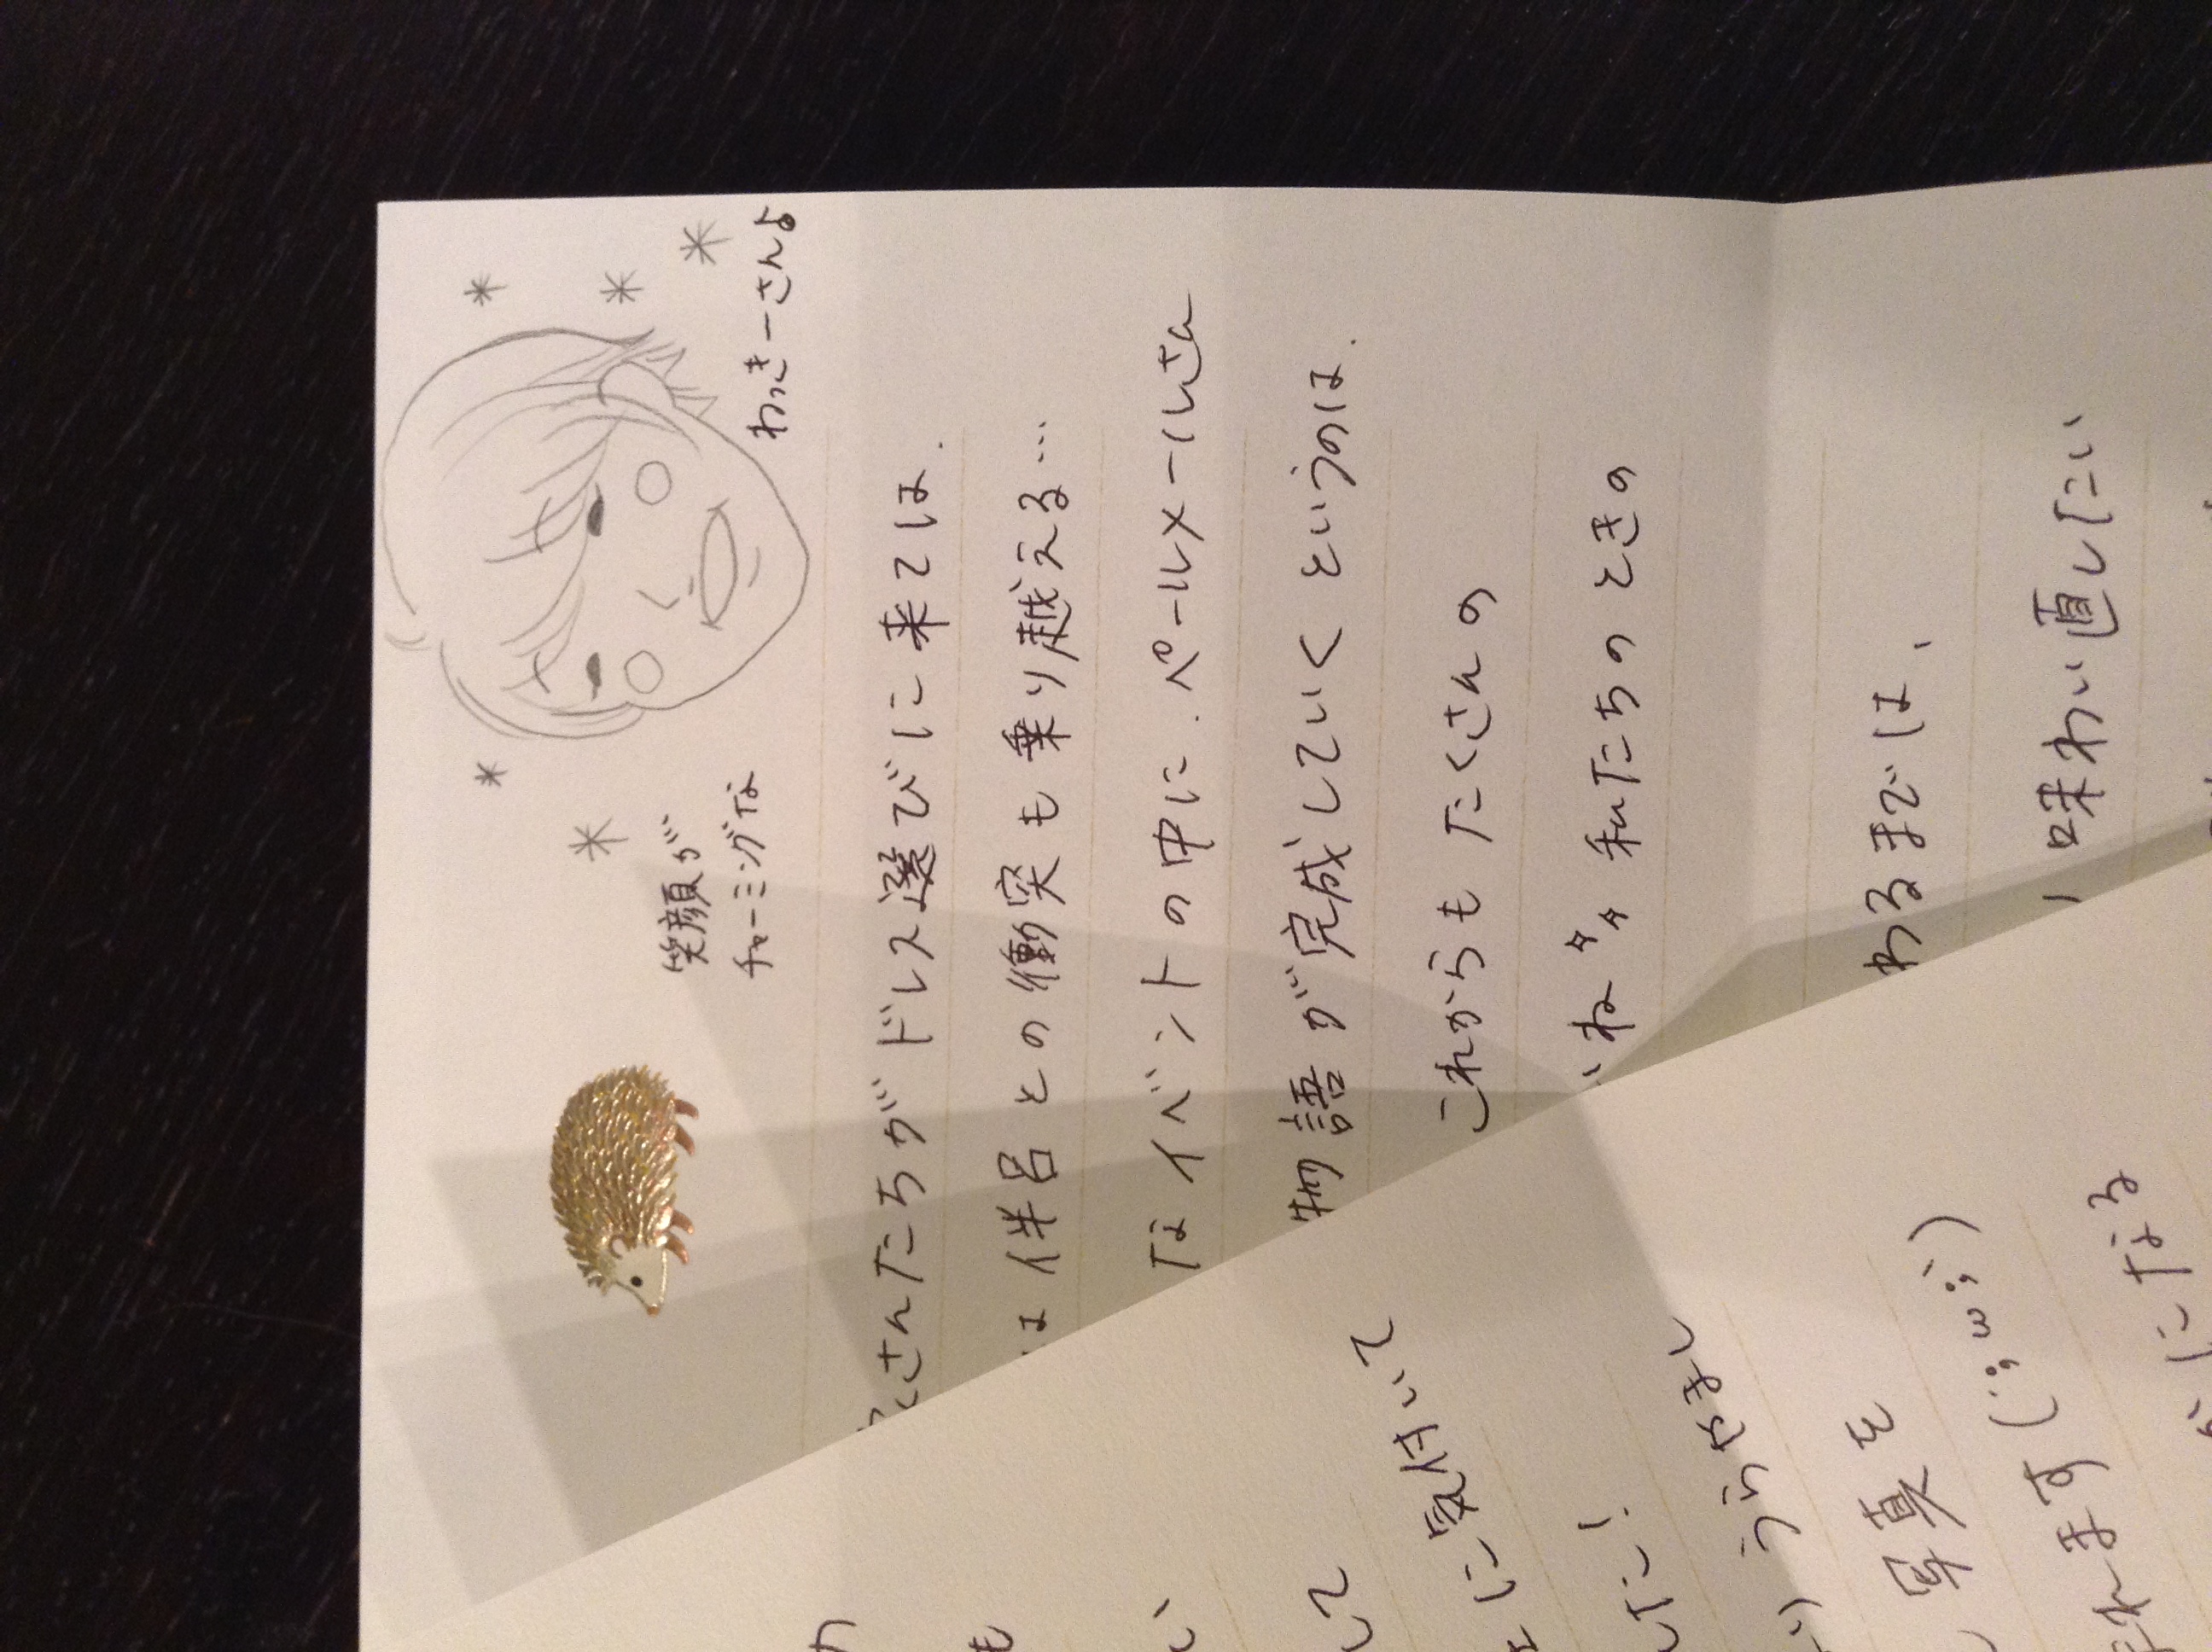 笑顔が
チャーミングな
わっきーさんよ
さんたちがドレス選びに来ては.
は伴侶との衝突も乗り越える…
なイベントの中に.ペールメールさん
物語が完成していくというのは.
これからもたくさんの
ね 私たちのときの
わるまでは、
味わい直したい
に気付いて
した！
うらやまし
写真を
れます(；ω；)
になる